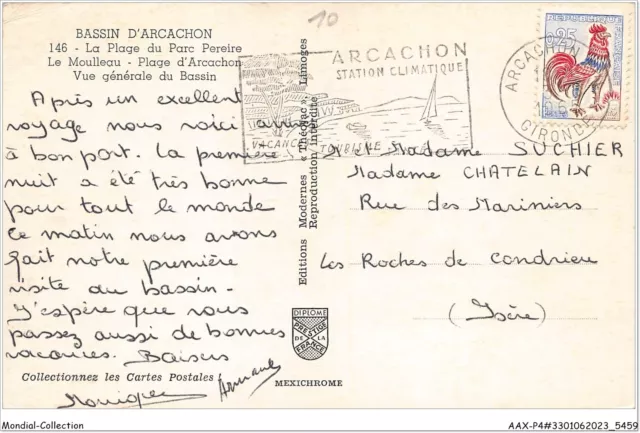 BASSIN D'ARCACHON
146 - La Plage du Parc Pereire
Le Moulleau - Plage d'Arcachon
Vue générale du Bassin
10
ARCACHON
STATION CLIMATIQUE
VACANCES TOURISME
ARCACHON
GIRONDE
0,25
Après un excellent
voyage nous voici arrivés
à bon port. La première
nuit a été très bonne
pour tout le monde
Ce matin nous avons
fait notre première
visite au bassin-
J'espère que vous
passez aussi de bonnes
vacances. Baisers
Monique
Armand
Collectionnez les Cartes Postales !
Editions Modernes « Théojac », Limoges
Reproduction interdite
DIPLOME
PRESTIGE
DE LA
FRANCE
MEXICHROME
Mr et Madame SUCHIER
Madame CHATELAIN
Rue des Mariniers
Les Roches de Condrieu
(Isère)
Mondial-Collection
AAX-P4#3301062023_5459